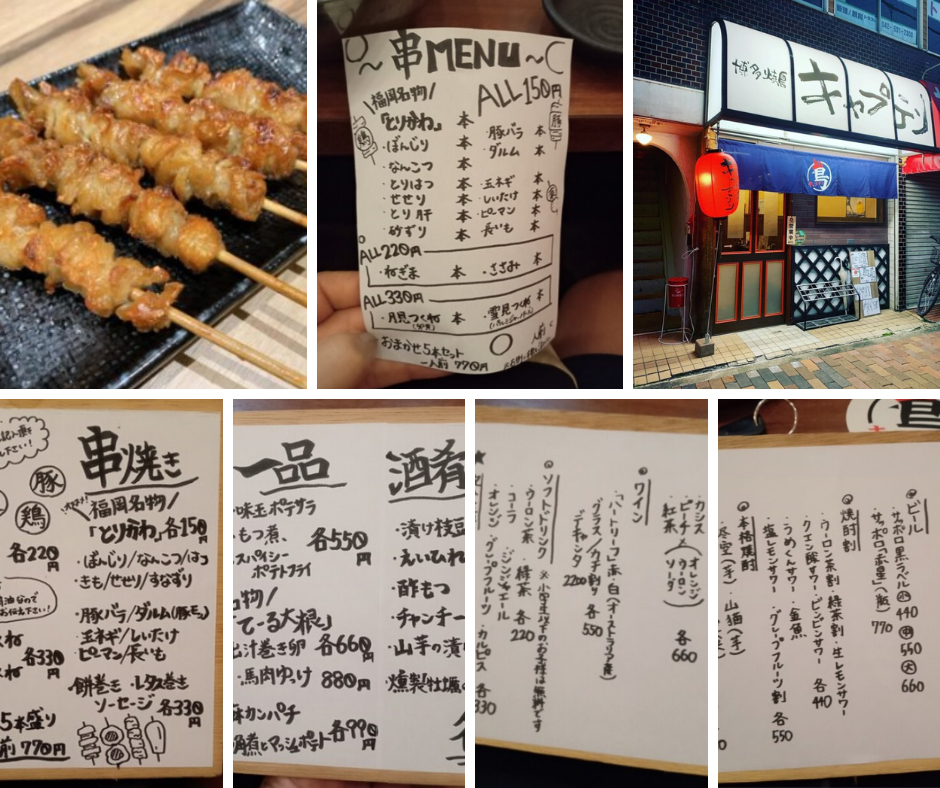 ～串MENU～
ALL150円
福岡名物/
「とりかわ」 本
・ぼんじり 本
・なんこつ 本
・とりはつ 本
・せせり 本
・とり肝 本
・砂ずり 本
・豚バラ 本
・ダルム 本
・玉ネギ 本
・しいたけ 本
・ピーマン 本
・長いも 本
ALL220円
・ねぎま 本 ・ささみ 本
ALL330円
・月見つくね 本 ・雪見つくね 本
おまかせ5本セット
一人前 770円
博多串焼
キャプテン
鳥
串焼き
豚
鶏
福岡名物/
「とりかわ」各150円
・ぼんじり/なんこつ/はつ
・きも/せせり/すなずり
・豚バラ/ダルム(豚モツ)
・玉ネギ/しいたけ
・ピーマン/長いも
餅巻き・レタス巻き
ソーセージ 各330円
各220円
各330円
5本盛り
前 770円
一品
味玉ポテサラ
もつ煮、
スパイシー
ポテトフライ
各550円
名物/
てーる大根」
出汁巻き卵 各660円
・馬肉ゆっけ 880円
カンパチ
煮とマッシュポテト 各990円
酒肴
・漬け枝豆
・えいひれ
・酢もつ
・チャンチー
・山芋の漬け
・燻製牡蠣
・カシス
・ピーチ
紅茶
オレンジ
ウーロン
ソーダ
各660
ワイン
・「ハートリーフ」赤・白(オーストラリア産)
グラス/カチ割り 各550
デキャンタ 2200
ソフトドリンク ※小学生以下のお子様は無料です
・ウーロン茶・緑茶 各220
・コーラ・ジンジャエール
・オレンジ・グレープフルーツ・カルピス 各330
ビール
・サッポロ黒ラベル 小 440 中 550 大 660
・サッポロ「赤星」(瓶) 770
焼酎割
・ウーロン茶割・緑茶割・生レモンサワー
・クエン酸サワー・ビンビンサワー 各440
・うめくんサワー・金魚
・塩レモンサワー・グレープフルーツ割 各550
本格焼酎
・山猫(芋)